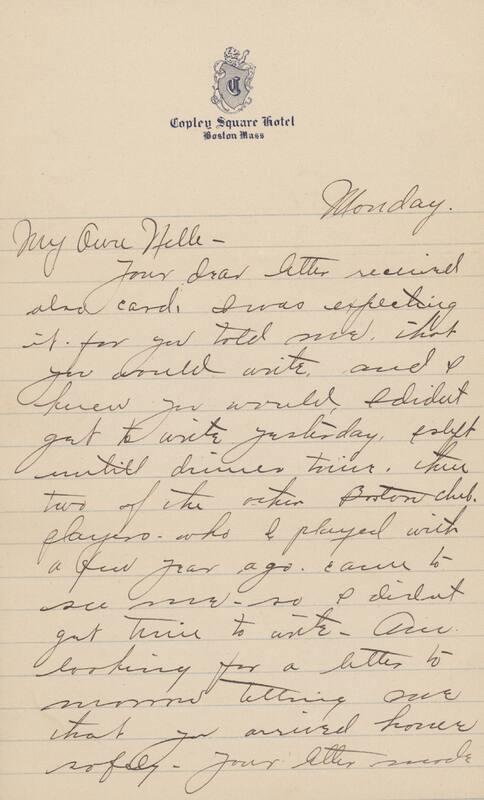 C
Copley Square Hotel
Boston Mass
Monday.
My Own Nelle-
Your dear letter received
also card, I was expecting
it. for you told me. that
you would write, and I
knew you would, I didnt
get to write yesterday, I slept
untill dinner time. then
two of the other Boston club.
players. who I played with
a few year ago. came to
see me- so I didnt
get time to write- Am
looking for a letter to
morrow telling me
that you arrived home
safely- Your letter made